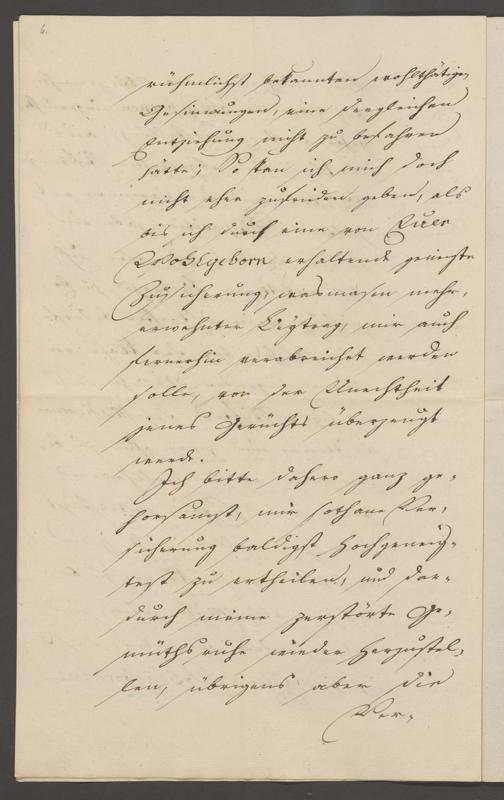 6.
rühmlichst bekannten wohlthätigen
Gesinnungen, eine dergleichen
Entziehung nicht zu befahren
hätte; So kan ich mich doch
nicht eher zufrieden geben, als
bis ich durch eine von Euer
Wohlgeborn erhaltende geneigte
Zusicherung, wasmasen mehr-
erwehnter Beytrag, mir auch
fernerhin verabreichet werden
solle, von der Unechtheit
jenes Gerüchts überzeugt
werde.
Ich bitte dahero ganz ge-
horsamst, mir sothane Ver-
sicherung baldigst hochgeneig-
test zu ertheilen, und dar-
durch meine zerstörte Ge-
müthsruhe wieder herzustel-
len, übrigens aber die
Ver-